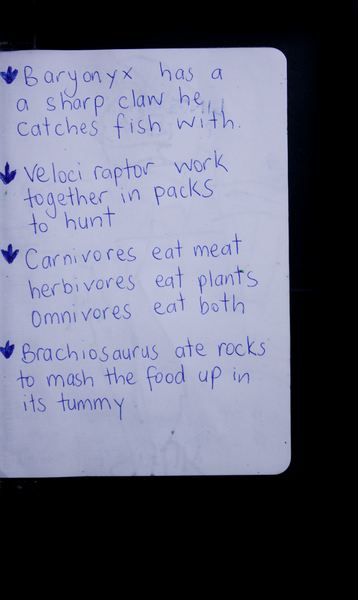 Baryonyx has a
a sharp claw he
catches fish with.
Veloci raptor work
together in packs
to hunt
Carnivores eat meat
herbivores eat plants
Omnivores eat both
Brachiosaurus ate rocks
to mash the food up in
its tummy